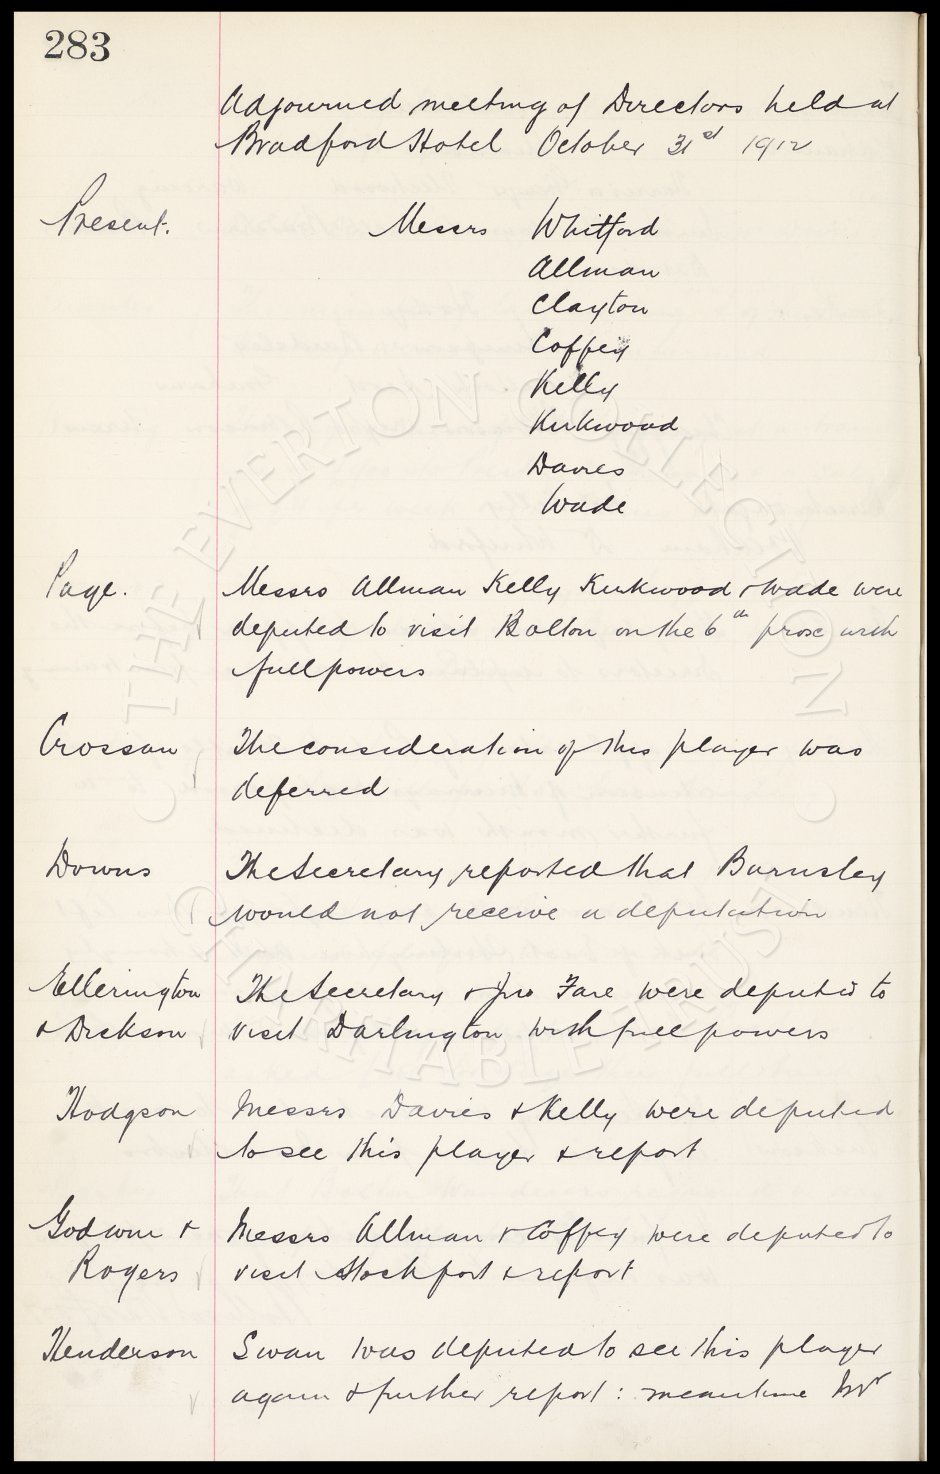 283
Adjourned meeting of Directors held at
Bradford Hotel October 31st 1912
Present. Messrs Whitford
Allman
Clayton
Coffey
Kelly
Kirkwood
Davies
Wade
Page. Messrs Allman Kelly Kirkwood & Wade were
deputed to visit Bolton on the 6th prox with
full powers
Crossan The consideration of this player was
deferred
Downs The Secretary reported that Barnsley
would not receive a deputation
Ellerington The Secretary & Jno Fare were deputed to
& Dickson visit Darlington with full powers
Hodgson Messrs Davies & Kelly were deputed
to see this player & report
Godwin & Messrs Allman & Coffey were deputed to
Rogers visit Stockport & report
Henderson Swan was deputed to see this player
again & further report: meantime Mr
THE EVERTON COLLECTION
CHARITABLE TRUST